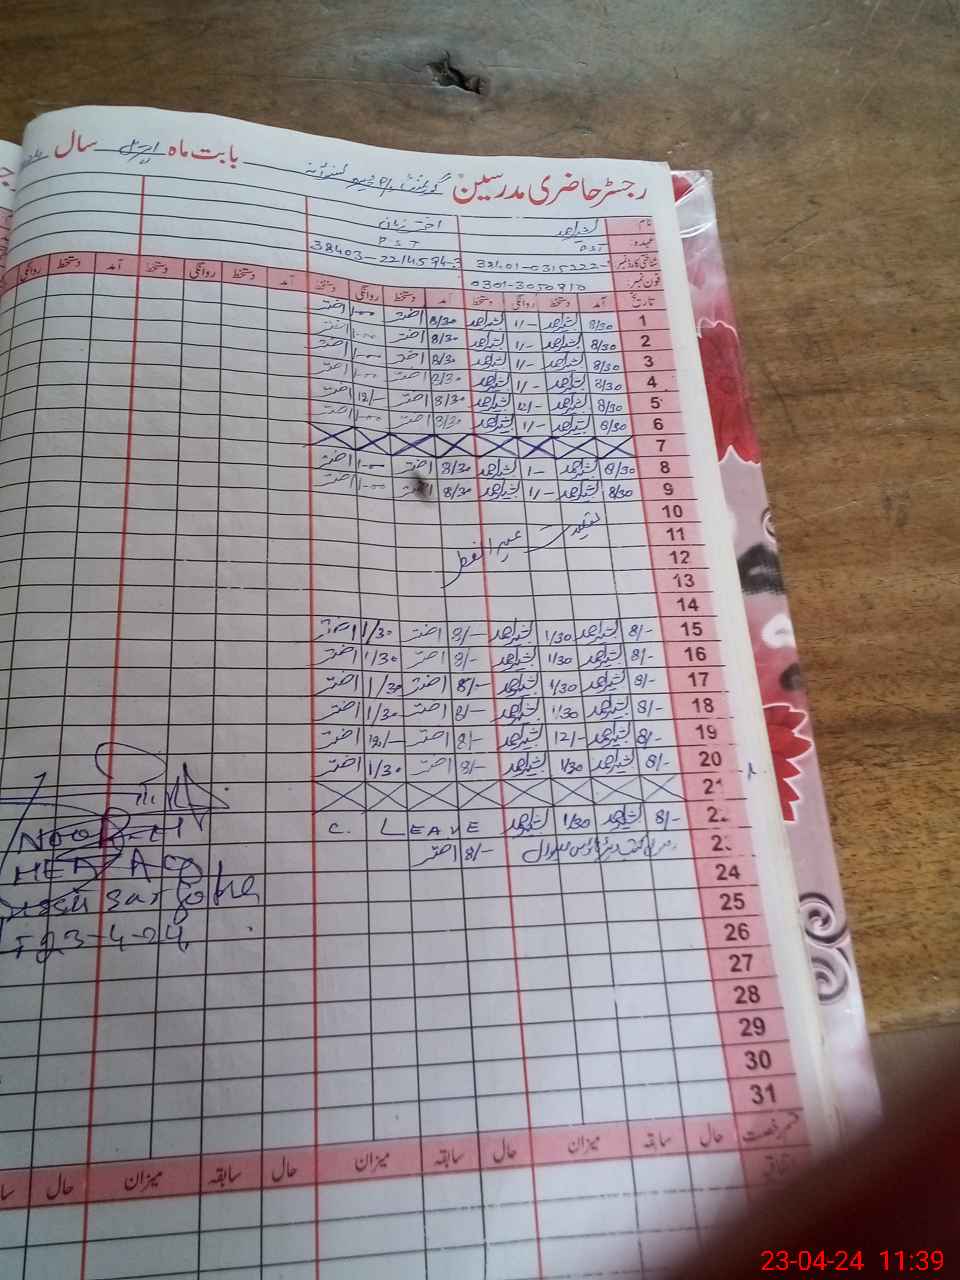 رجسٹر حاضری مدرسین گورنمنٹ بابت ماہ اپریل سال
نام بشیر احمد اختر زمان
عہدہ PST PST
شناختی کارڈ نمبر 38403-2214594-3
فون نمبر 0301-3050810
تاریخ آمد دستخط روانگی دستخط آمد دستخط روانگی دستخط آمد دستخط روانگی دستخط آمد دستخط روانگی
1 8/30 بشیر احمد 1/- بشیر احمد 8/30 اختر 1-00 اختر
2 8/30 بشیر احمد 1/- بشیر احمد 8/30 اختر 1-00 اختر
3 8/30 بشیر احمد 1/- بشیر احمد 8/30 اختر 1-00 اختر
4 8/30 بشیر احمد 1/- بشیر احمد 8/30 اختر 1-00 اختر
5 8/30 بشیر احمد 12/- بشیر احمد 8/30 اختر 12/- اختر
6 8/30 بشیر احمد 1/- بشیر احمد 8/30 اختر 1-00 اختر
7
8 8/30 بشیر احمد 1/- بشیر احمد 8/30 اختر 1-00 اختر
9 8/30 بشیر احمد 1/- بشیر احمد 8/30 اختر 1-00 اختر
10
11 تعطیلات عید الفطر
12
13
14
15 8/- بشیر احمد 1/30 بشیر احمد 8/- اختر 1/30 اختر
16 8/- بشیر احمد 1/30 بشیر احمد 8/- اختر 1/30 اختر
17 8/- بشیر احمد 1/30 بشیر احمد 8/- اختر 1/30 اختر
18 8/- بشیر احمد 1/30 بشیر احمد 8/- اختر 1/30 اختر
19 8/- بشیر احمد 12/- بشیر احمد 8/- اختر 12/- اختر
20 8/- بشیر احمد 1/30 بشیر احمد 8/- اختر 1/30 اختر
21
22 8/- بشیر احمد 1/30 بشیر احمد C. LEAVE
23 8/- اختر
24
25
26
27
28
29
30
31
HEAD
23-4-24
قسم رخصت حال سابقہ میزان حال سابقہ میزان حال سابقہ میزان حال
اتفاقی
23-04-24 11:39